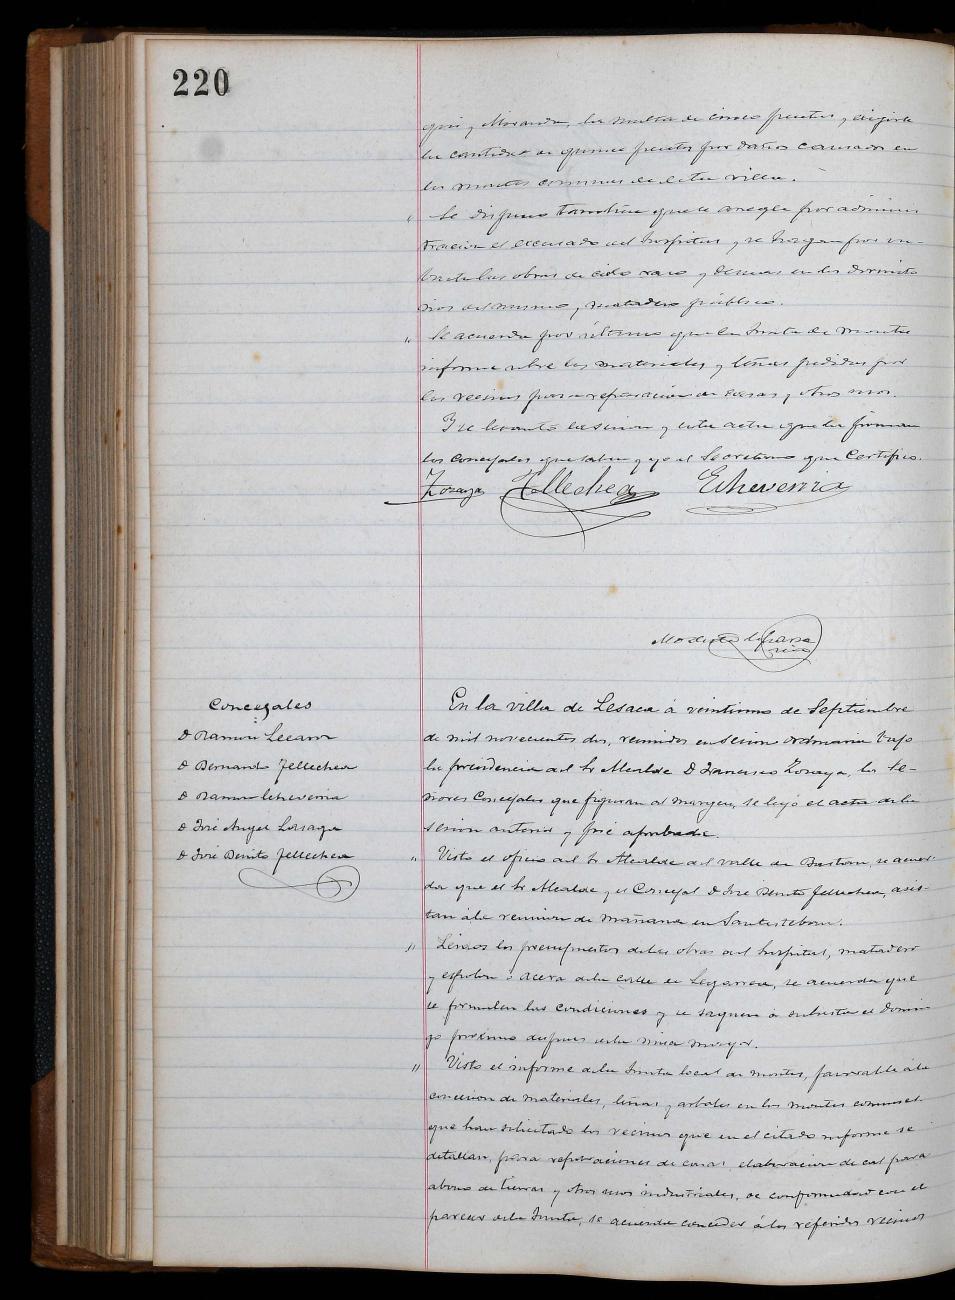 220
y Miranda, la multa de cinco pesetas y exigirle
la cantidad de quince pesetas por daños causados en
los montes comunes de esta villa.
" Se dispuso también que se arregle por adminis
tracion el escusado del hospital y se hagan por su-
basta las obras de cielo raso y demas en los dormito
rios del mismo, y matadero público.
" Se acuerda por último que la Junta de montes
informe sobre los materiales y leñas pedidas por
los vecinos para reparacion de casas y otros usos.
Y se levantó la sesion y esta acta que la firman
los concejales que saben y yo el Secretario que certifico.
Zozaya Tellechea Echeverria
Modesto
Concejales
D Ramon Lecaroz
D Bernardo Tellechea
D Ramon Echeverria
D José Angel
D José Benito Tellechea
En la villa de Lesaca á veintiuno de Septiembre
de mil novecientos dos, reunidos en sesion ordinaria bajo
la presidencia del Sr Alcalde D Francisco Zozaya, los Se-
ñores Concejales que figuran al margen, se leyó el acta de la
sesion anterior y fué aprobada.
" Visto el oficio del Sr Alcalde del valle de Baztan, se acuer-
da que el Sr Alcalde y el Concejal D José Benito Tellechea, asis-
tan á la reunion de mañana en Santesteban.
" Leidos los presupuestos de las obras del hospital, matadero
y ó acera de la calle de Legarrea, se acuerda que
se formulen las condiciones y se saquen á subasta el Domin
go próximo despues de la misa mayor.
" Visto el informe de la Junta local de montes, favorable á la
concesion de materiales, leñas y arboles en los montes comunes
que han solicitado los vecinos que en el citado informe se
detallan, para reparaciones de casas, elaboracion de cal para
abono de tierras y otros usos industriales, de conformidad con el
parecer de la Junta, se acuerda conceder á los referidos vecinos